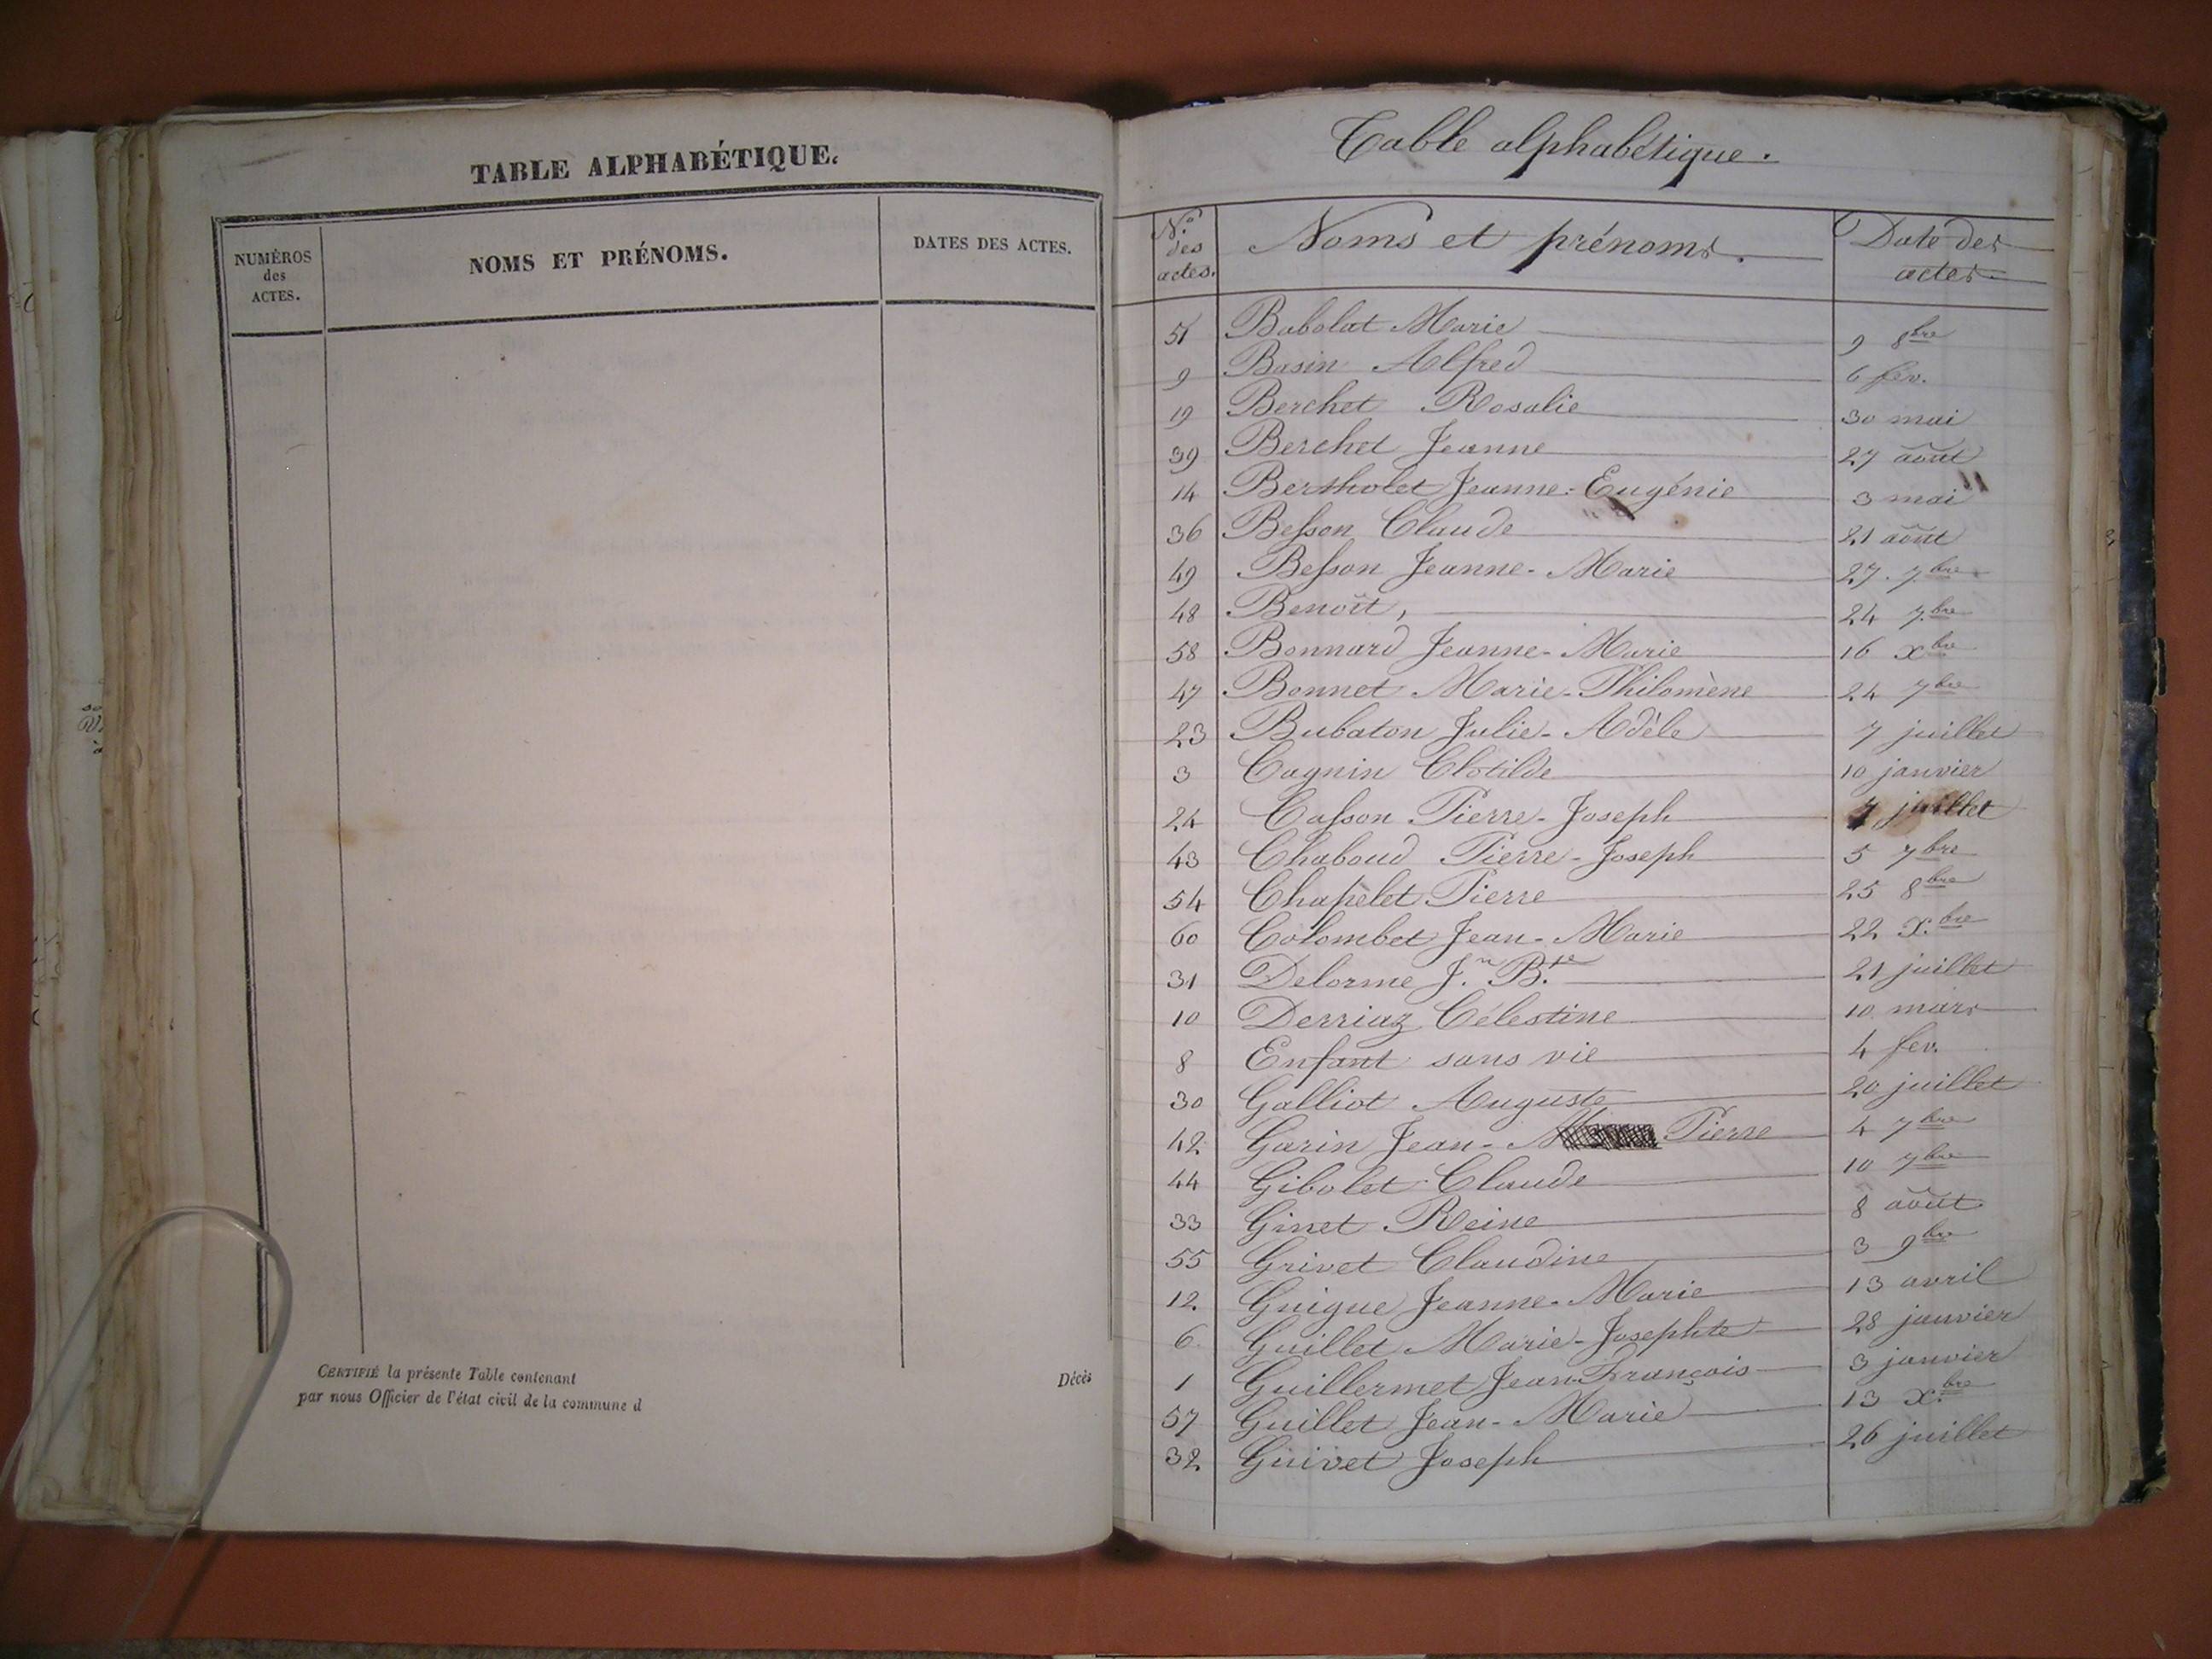 TABLE ALPHABÉTIQUE.
NUMÉROS
des
ACTES.
NOMS ET PRÉNOMS.
DATES DES ACTES.
CERTIFIÉ la présente Table contenant Décès
par nous Officier de l'état civil de la commune d
Table alphabétique.
N.o
des
actes.
Noms et prénoms.
Date des
actes
51 Babolat Marie 9 8bre
9 Basin Alfred 6 fév.
19 Berchet Rosalie 30 mai
39 Berchet Jeanne 27 août
14 Bertholet Jeanne-Eugénie 3 mai
36 Besson Claude 21 août
49 Besson Jeanne-Marie 27 7bre
48 Benoît, 24 7bre
58 Bonnard Jeanne-Marie 16 xbre
47 Bonnet Marie-Philomène 24 7bre
23 Bubaton Julie-Adèle 7 juillet
3 Cagnin Clotilde 10 janvier
24 Casson Pierre-Joseph 7 juillet
43 Chaboud Pierre-Joseph 5 7bre
54 Chapelet Pierre 25 8bre
60 Colombet Jean-Marie 22 x.bre
31 Delorme J.n B.te 21 juillet
10 Derriaz Célestine 10 mars
8 Enfant sans vie 4 fev.
30 Galliot Auguste 20 juillet
42 Garin Jean- Pierre 4 7bre
44 Gibolet Claude 10 7bre
33 Ginet Reine 8 août
55 Grivet Claudine 3 9bre
12 Guigue Jeanne-Marie 13 avril
6 Guillet Marie-Josephte 28 janvier
1 Guillermet Jean-François 3 janvier
57 Guillet Jean-Marie 13 x.bre
32 Guivet Joseph 26 juillet